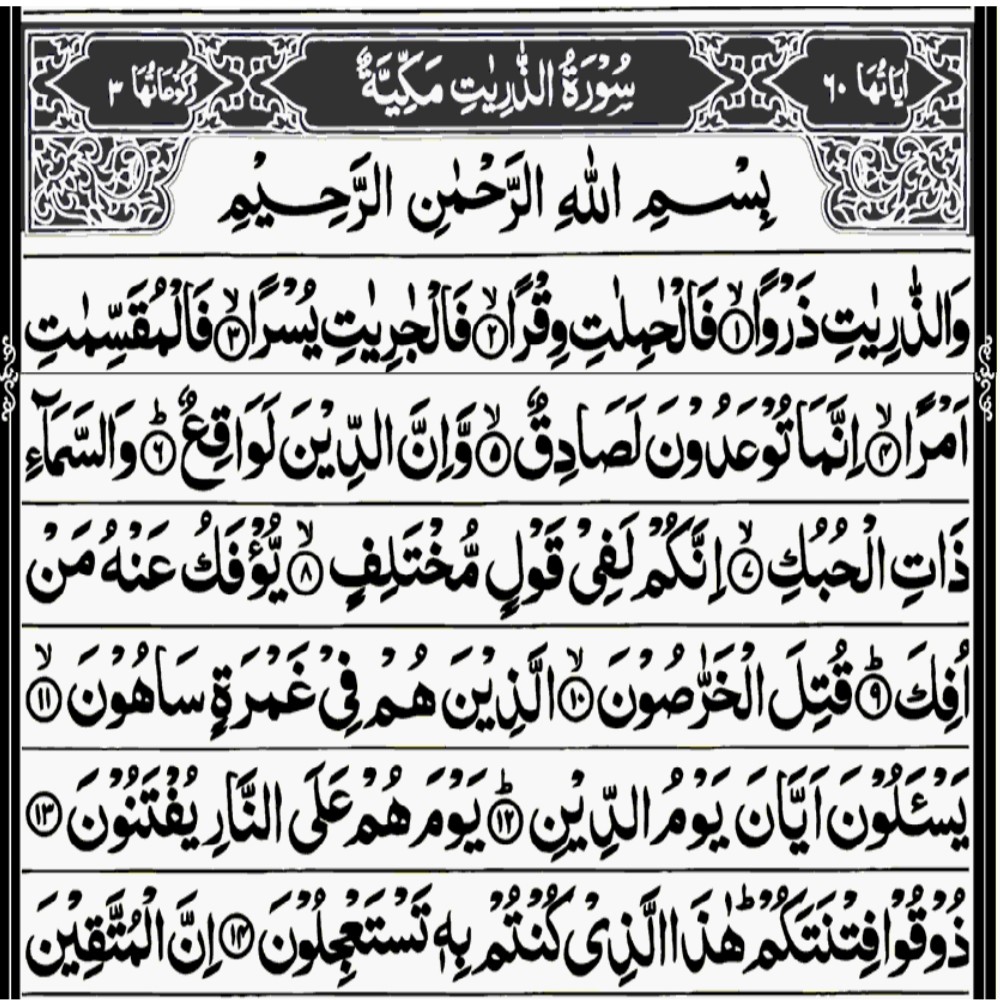 اٰیَاتُهَا ٦٠ سُوْرَةُ الذّٰرِیٰتِ مَكِّیَّةٌ رُكُوْعَاتُهَا ٣
بِسْمِ اللهِ الرَّحْمٰنِ الرَّحِیْمِ
وَالذّٰرِیٰتِ ذَرْوًا ۙ﴿۱﴾ فَالْحٰمِلٰتِ وِقْرًا ۙ﴿۲﴾ فَالْجٰرِیٰتِ یُسْرًا ۙ﴿۳﴾ فَالْمُقَسِّمٰتِ
اَمْرًا ۙ﴿۴﴾ اِنَّمَا تُوْعَدُوْنَ لَصَادِقٌ ۙ﴿۵﴾ وَّاِنَّ الدِّیْنَ لَوَاقِعٌ ؕ﴿۶﴾ وَالسَّمَآءِ
ذَاتِ الْحُبُكِ ۙ﴿۷﴾ اِنَّكُمْ لَفِیْ قَوْلٍ مُّخْتَلِفٍ ۙ﴿۸﴾ یُّؤْفَكُ عَنْهُ مَنْ
اُفِكَ ؕ﴿۹﴾ قُتِلَ الْخَرّٰصُوْنَ ۙ﴿۱۰﴾ الَّذِیْنَ هُمْ فِیْ غَمْرَةٍ سَاهُوْنَ ۙ﴿۱۱﴾
یَسْـَٔلُوْنَ اَیَّانَ یَوْمُ الدِّیْنِ ؕ﴿۱۲﴾ یَوْمَ هُمْ عَلَی النَّارِ یُفْتَنُوْنَ ﴿۱۳﴾
ذُوْقُوْا فِتْنَتَكُمْ ؕ هٰذَا الَّذِیْ كُنْتُمْ بِهٖ تَسْتَعْجِلُوْنَ ﴿۱۴﴾ اِنَّ الْمُتَّقِیْنَ